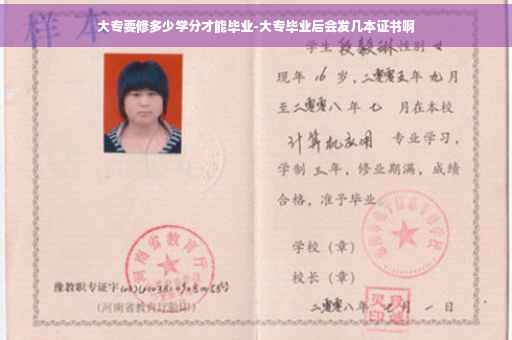 样本
大专要修多少学分才能毕业-大专毕业后会发几本证书啊
学生 段毅琳 性别 女
现年 16 岁，二零零五年 九月
至二零零八年 七 月在本校
计算机应用 专业学习，
学制 三 年，修业期满，成绩
合格，准予毕业
学校（章）
校长（章）
二零零八年 七 月 一 日
河南省教育厅
豫教职专证字
（河南省教育厅验印）